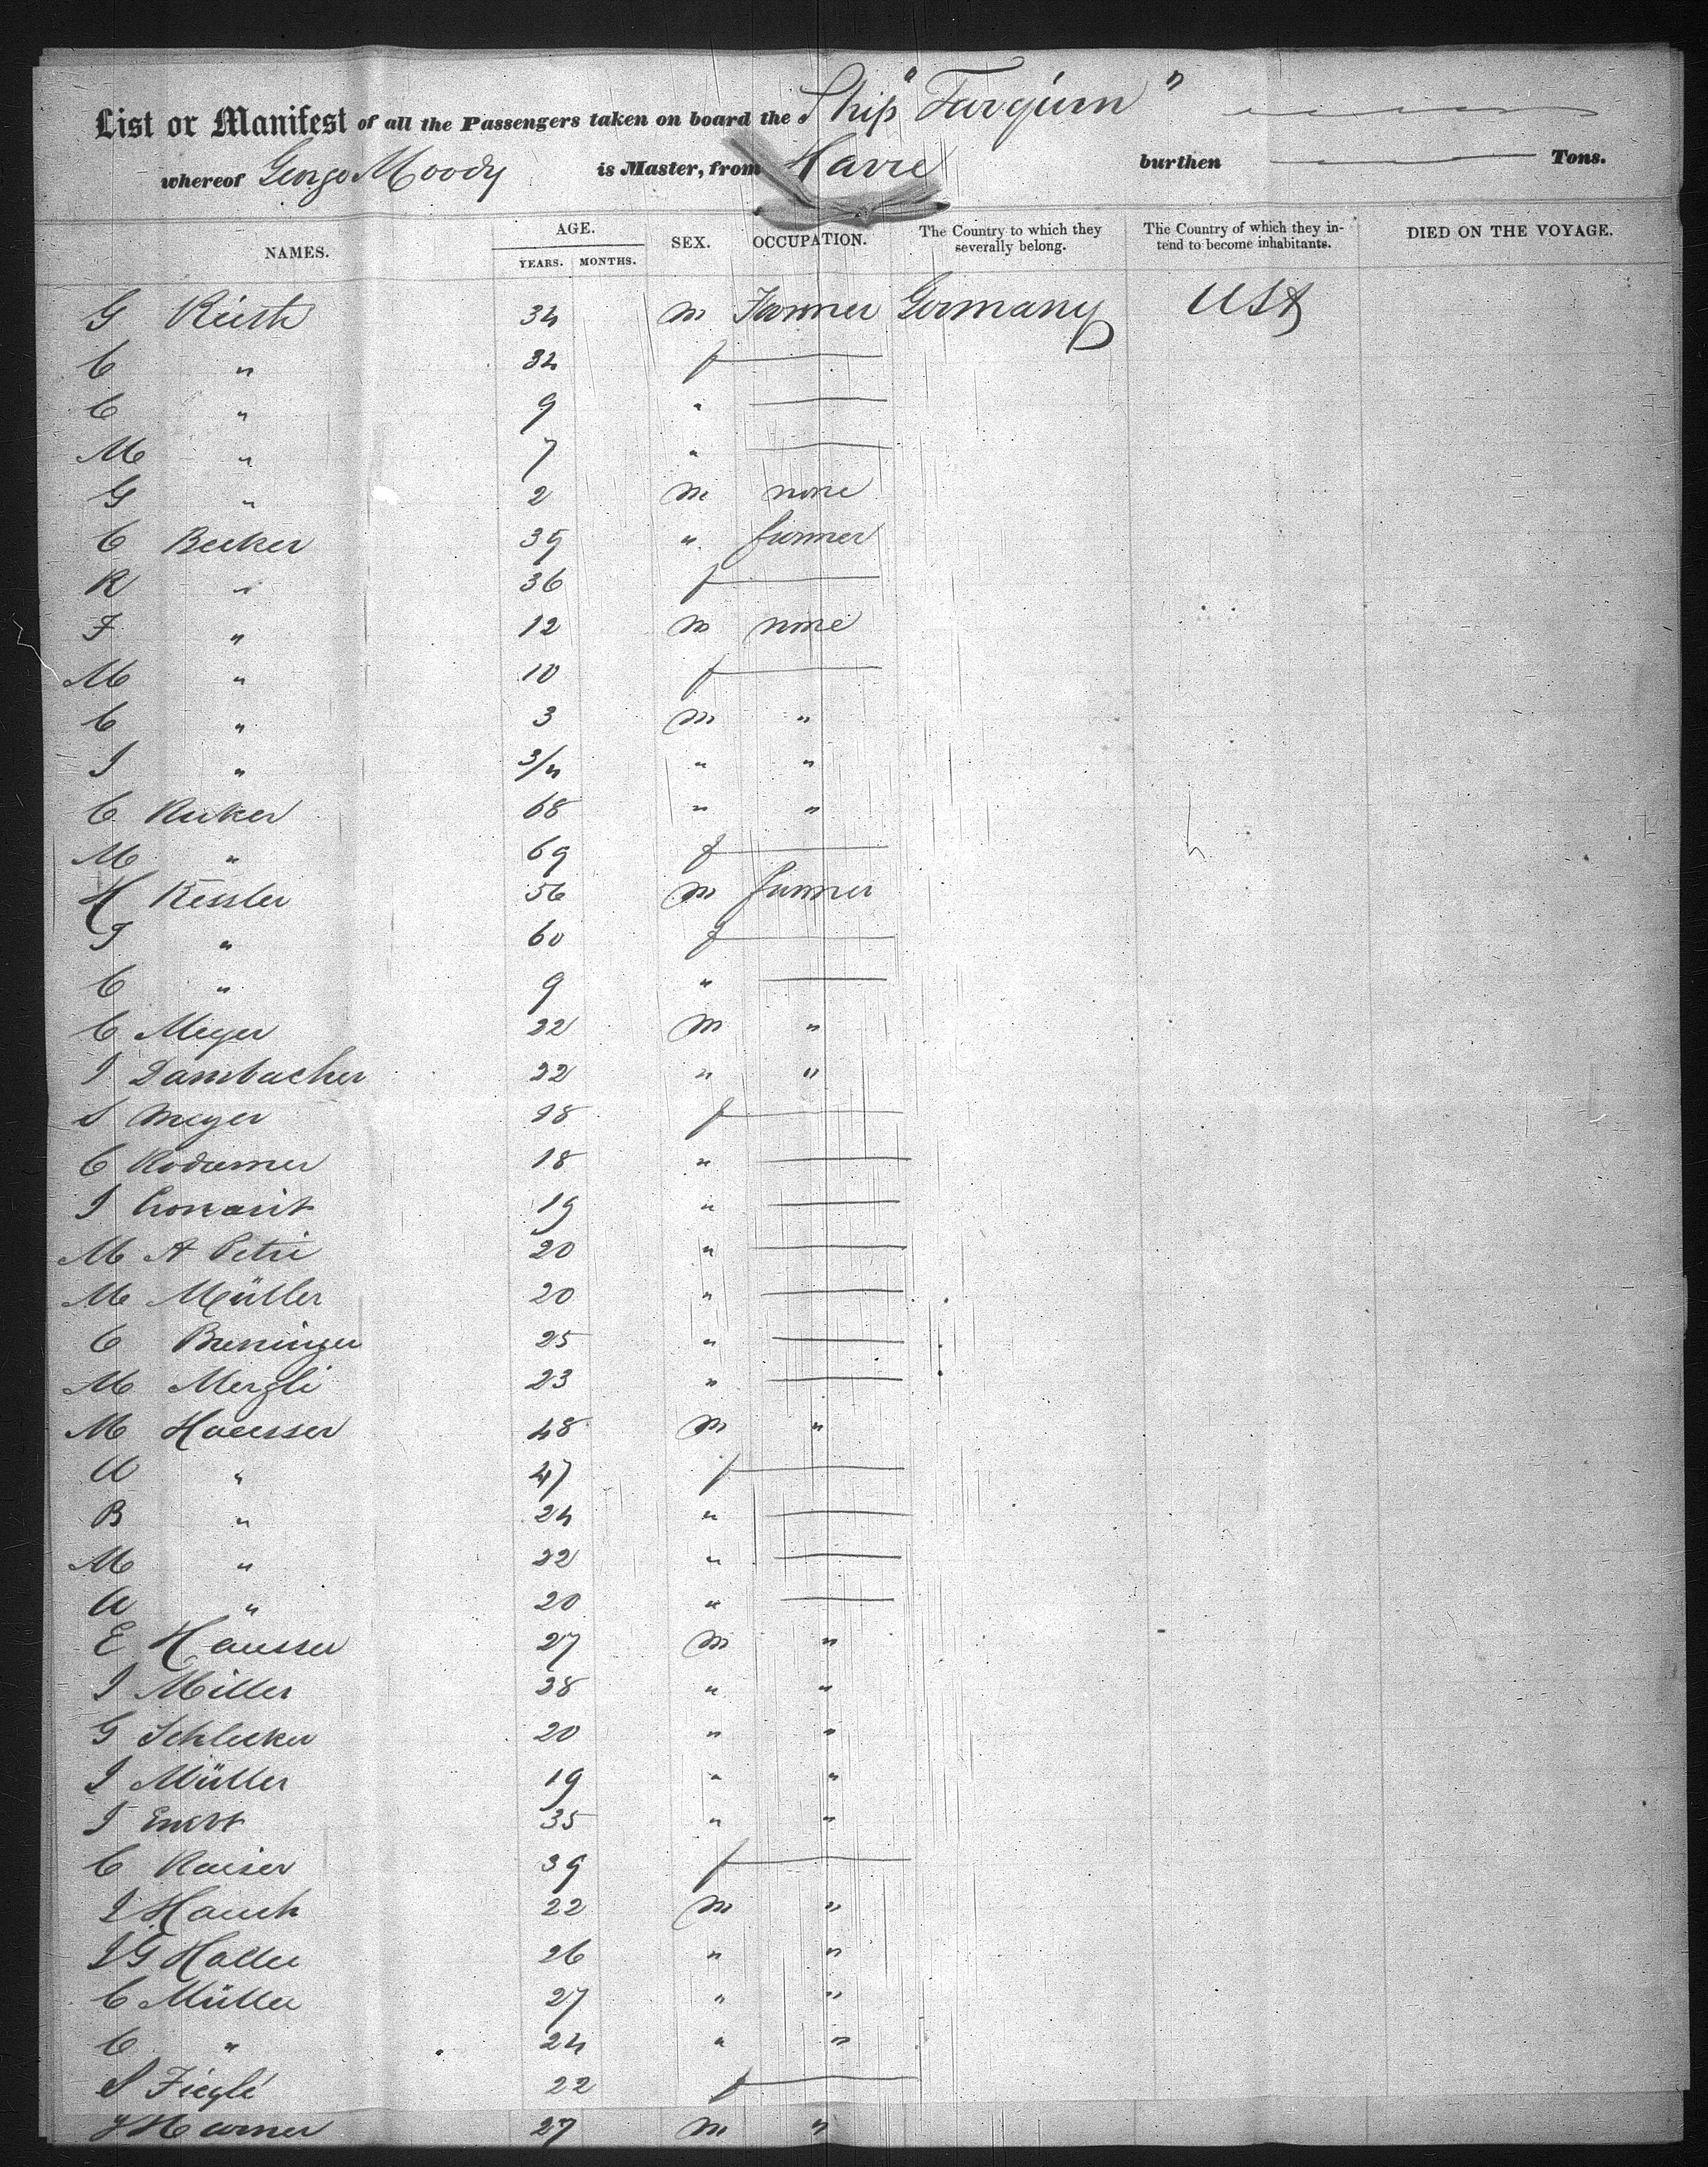 List or Manifest of all the Passengers taken on board the Ship "Tarquin"
whereof George Moody is Master, from Havre burthen Tons.
NAMES. AGE. YEARS. MONTHS. SEX. OCCUPATION. The Country to which they severally belong. The Country of which they intend to become inhabitants. DIED ON THE VOYAGE.
G 34 m Farmer Germany USA
C " 34 f
C " 9 "
M " 7 "
G " 2 m none
C Becker 39 " farmer
R " 36 f
F " 12 m none
M " 10 f
C " 3 m "
J " 3/4 " "
C 68 " "
M " 69 f
H Kessler 56 m farmer
T " 60 f
C " 9 "
C Meyer 22 m "
J Dambacher 22 " "
S Meyer 18 f
C 18 "
J 19 "
M A Petri 20 "
M Müller 20 "
C 25 "
M Mergli 23 "
M Hausser 48 m "
" 47 f
B " 24 "
M " 22 "
" 20 "
E Hausser 27 m "
J Miller 28 " "
G Schlecker 20 " "
J Müller 19 " "
J 35 " "
C Kaiser 39 f
J Hauch 22 m "
J G Haller 26 " "
C Müller 27 " "
C " 24 " "
S Fieglé 22 f
27 m "